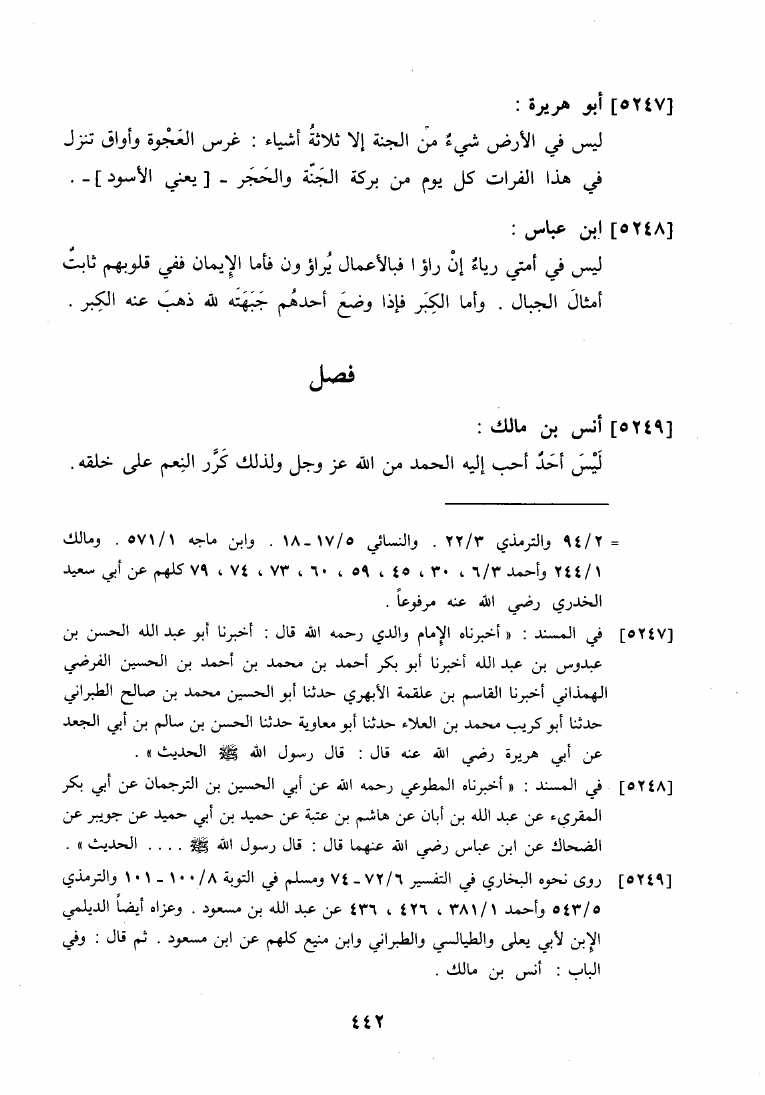 [٥٢٤٧] أبو هريرة :
ليس في الأرض شيءٌ من الجنة إلا ثلاثةُ أشياء : غرس العَجْوة وأواق تنزل
في هذا الفرات كل يوم من بركة الجَنّة والحَجَر - [ يعني الأسود ] - .
[٥٢٤٨] ابن عباس :
ليس في أمتي رياءٌ إنْ راؤ ا فبالأعمال يُراؤ ون فأما الإيمان ففي قلوبهم ثابتٌ
أمثالَ الجبال . وأما الكِبَر فإذا وضعَ أحدهُم جَبَهَته لله ذهبَ عنه الكِبر .
فصل
[٥٢٤٩] أنس بن مالك :
لَيْسَ أحَدٌ أحب إليه الحمد من الله عز وجل ولذلك كَرَّر النِعم على خلقه .
= ٩٤/٢ والترمذي ٢٢/٣ . والنسائي ١٧/٥ـ١٨ . وابن ماجه ٥٧١/١ . ومالك
٢٤٤/١ وأحمد ٦/٣ ، ٣٠ ، ٤٥ ، ٥٩ ، ٦٠ ، ٧٣ ، ٧٤ ، ٧٩ كلهم عن أبي سعيد
الخدري رضي الله عنه مرفوعاً .
[٥٢٤٧] في المسند : « أخبرناه الإمام والدي رحمه الله قال : أخبرنا أبو عبد الله الحسن بن
عبدوس بن عبد الله أخبرنا أبو بكر أحمد بن محمد بن أحمد بن الحسين الفرضي
الهمذاني أخبرنا القاسم بن علقمة الأبهري حدثنا أبو الحسين محمد بن صالح الطبراني
حدثنا أبو كريب محمد بن العلاء حدثنا أبو معاوية حدثنا الحسن بن سالم بن أبي الجعد
عن أبي هريرة رضي الله عنه قال : قال رسول الله ﷺ الحديث » .
[٥٢٤٨] في المسند : « أخبرناه المطوعي رحمه الله عن أبي الحسين بن الترجمان عن أبي بكر
المقريء عن عبد الله بن أبان عن هاشم بن عتبة عن حميد بن أبي حميد عن جويبر عن
الضحاك عن ابن عباس رضي الله عنهما قال : قال رسول الله ﷺ .... الحديث » .
[٥٢٤٩] روى نحوه البخاري في التفسير ٧٢/٦ـ٧٤ ومسلم في التوبة ١٠٠/٨ـ١٠١ والترمذي
٥٤٣/٥ وأحمد ٣٨١/١ ، ٤٢٦ ، ٤٣٦ عن عبد الله بن مسعود . وعزاه أيضاً الديلمي
الإبن لأبي يعلى والطيالسي والطبراني وابن منيع كلهم عن ابن مسعود . ثم قال : وفي
الباب : أنس بن مالك .
٤٤٢